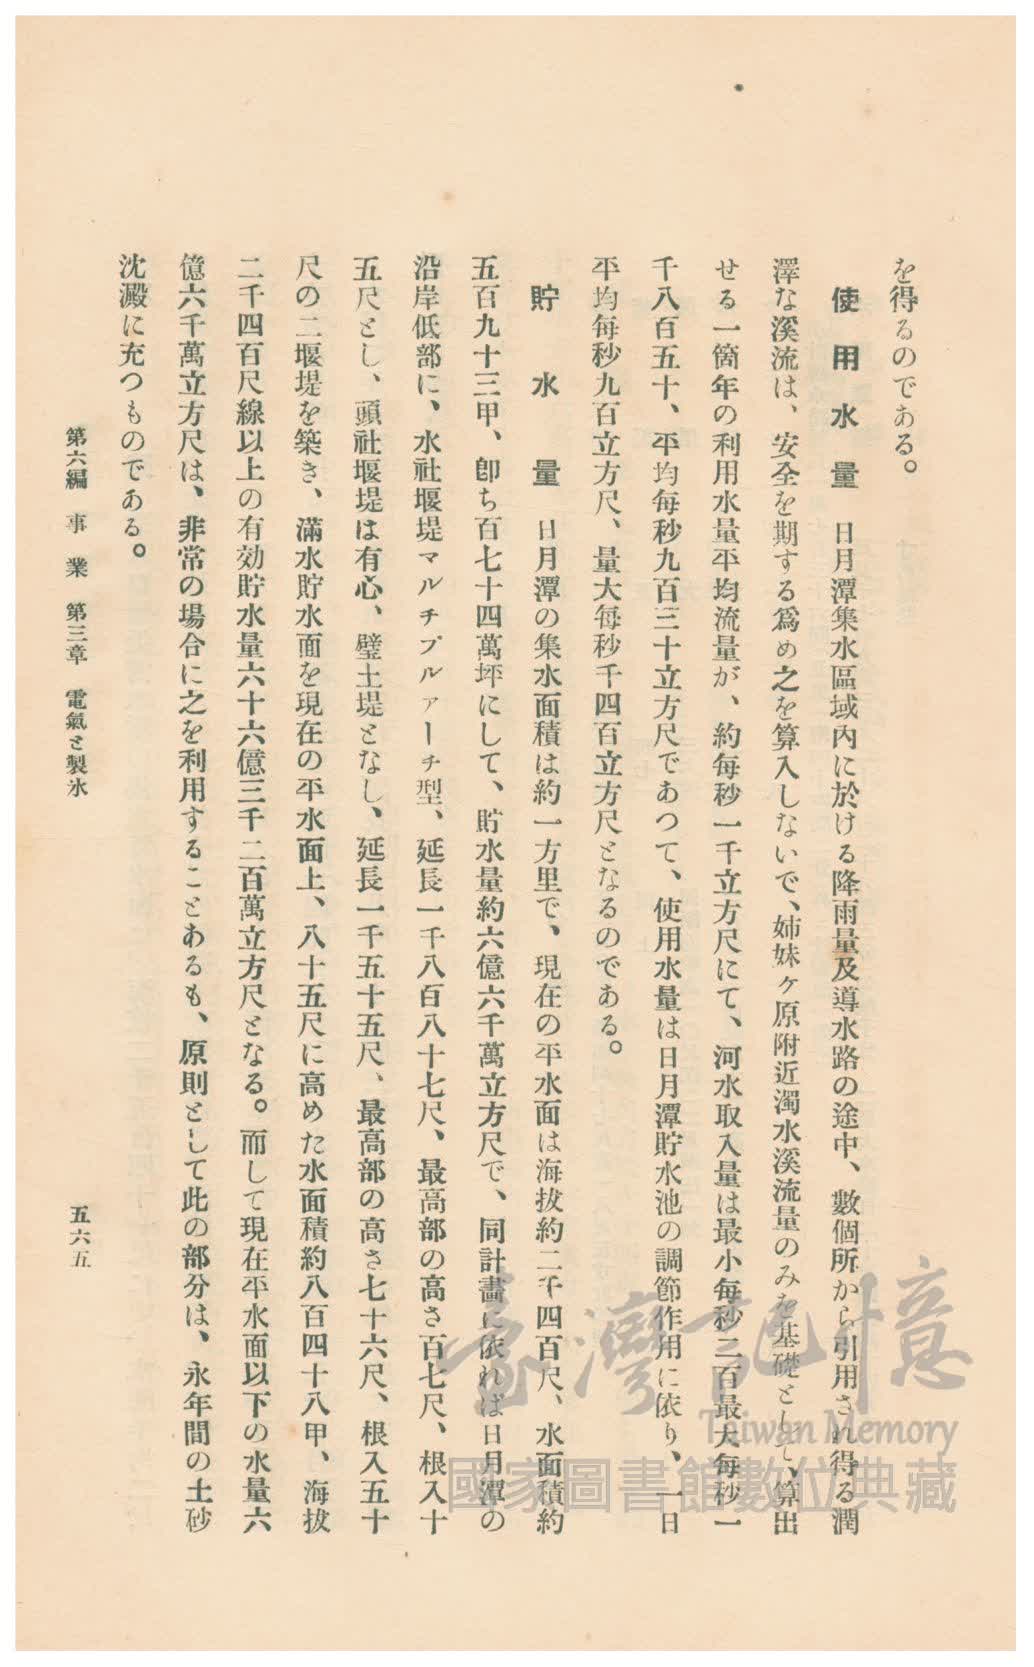 を得るのである。
使用水量　日月潭集水區域內に於ける降雨量及導水路の途中、數個所から引用され得る潤
澤な溪流は、安全を期する爲め之を算入しないで、姉妹ケ原附近濁水溪流量のみを基礎として、算出
せる一箇年の利用水量平均流量が、約每秒一千立方尺にて、河水取入量は最小每秒二百最大每秒一
千八百五十、平均每秒九百三十立方尺であつて、使用水量は日月潭貯水池の調節作用に依り、一日
平均每秒九百立方尺、量大每秒千四百立方尺となるのである。
貯水量　日月潭の集水面積は約一方里で、現在の平水面は海拔約二千四百尺、水面積約
五百九十三甲、卽ち百七十四萬坪にして、貯水量約六億六千萬立方尺で、同計畫に依れば日月潭の
沿岸低部に、水社堰堤マルチプルアーチ型、延長一千八百八十七尺、最高部の高さ百七尺、根入十
五尺とし、頭社堰堤は有心、壁土堤となし、延長一千五十五尺、最高部の高さ七十六尺、根入五十
尺の二堰堤を築き、滿水貯水面を現在の平水面上、八十五尺に高めた水面積約八百四十八甲、海拔
二千四百尺線以上の有効貯水量六十六億三千二百萬立方尺となる。而して現在平水面以下の水量六
億六千萬立方尺は、非常の場合に之を利用することあるも、原則として此の部分は、永年間の土砂
沈澱に充つものである。
第六編　事業　第三章　電氣と製氷
五六五
臺灣記憶
Taiwan Memory
國家圖書館數位典藏